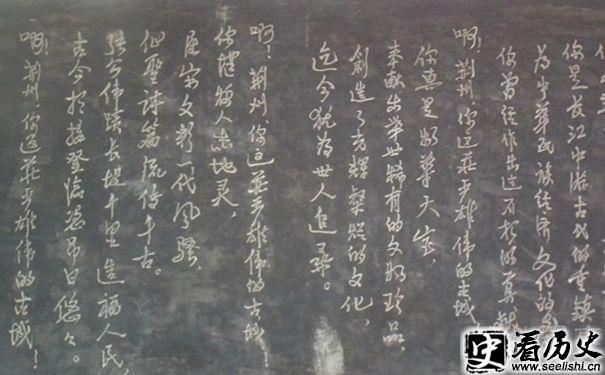 你是长江中游古代的重镇
为中华民族经济文化的
你曾经作出过不朽的贡献
啊！荆州，你这庄严雄伟的古城
你真是物华天宝，
奉献出举世稀有的文物珍品，
创造了光辉灿烂的文化，
迄今犹为世人追寻。
啊！荆州，你这庄严雄伟的古城！
你毓人杰地灵，
屈宋文彩一代风骚，
诗篇流传千古。
张公伟绩长堤千里造福人民，
古今相接登临凭吊日悠悠。
啊！荆州，你这庄严雄伟的古城！
史 看历史
www.seelishi.cn